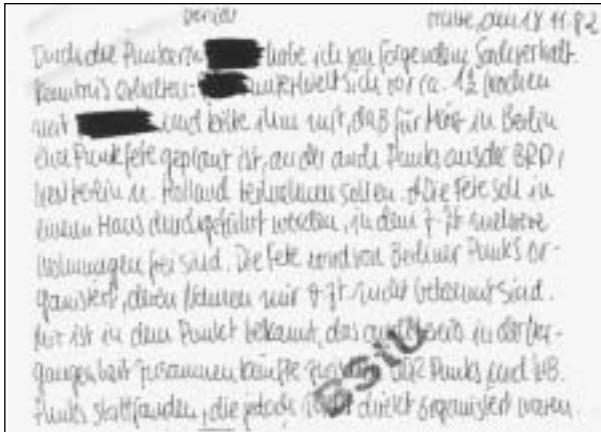 Bericht Halle, den 18.11.82
Durch die Punkerin habe ich von folgendem Sachverhalt
Kenntnis erhalten. unterhielt sich vor ca. 1½ Wochen
mit und teilte ihm mit, daß für in Berlin
eine Punkfete geplant ist, an der auch Punks aus der BRD,
Westberlin u. Holland teilnehmen sollen. Die Fete soll in
einem Haus durchgeführt werden, in dem z. Zt. mehrere
Wohnungen frei sind. Die Fete wird von Berliner Punks or-
ganisiert, deren Namen mir z. Zt. nicht bekannt sind.
Mir ist in dem Punkt bekannt, das bereits in der Ver-
gangenheit Zusammenkünfte zwischen DDR Punks und WB.
Punks stattfanden, die jedoch nicht direkt organisiert waren.
BStU